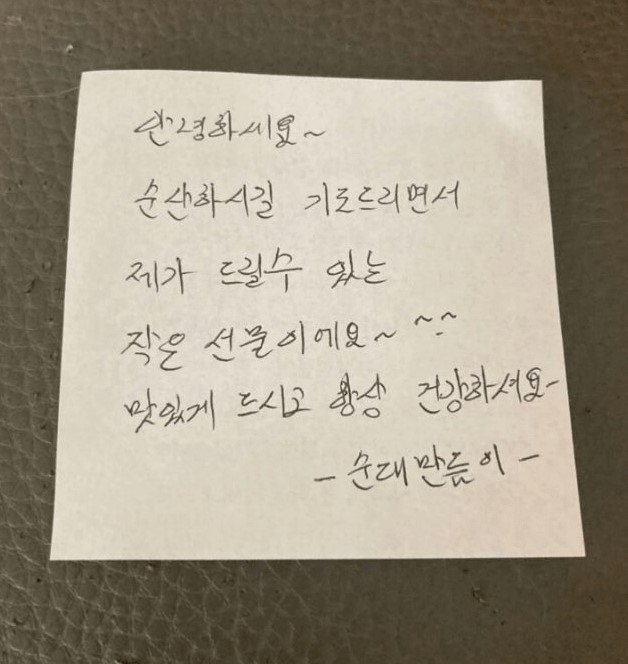 안녕하세요~
순산하시길 기도드리면서
제가 드릴수 있는
작은 선물이에요~ ^.^
맛있게 드시고 항상 건강하세요~
- 순대만듦이 -